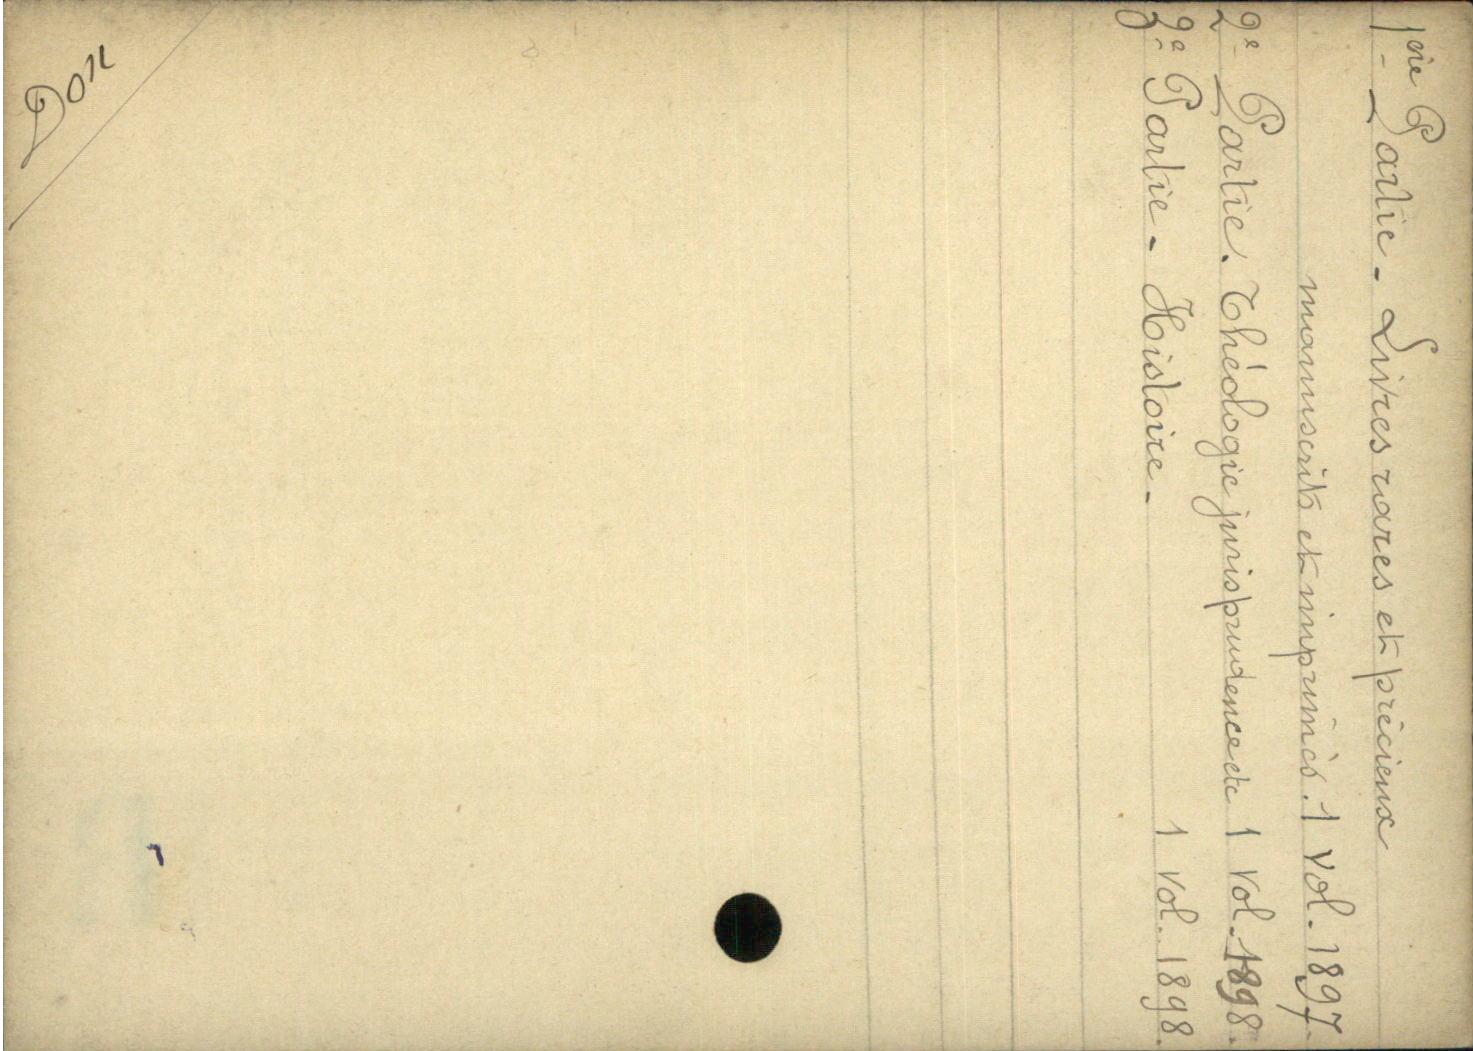 1ère Partie - Livres rares et précieux
manuscrits et imprimés. 1 Vol. 1897.
2e Partie. Théologie jurisprudence etc 1 Vol. 1898.
3e Partie - Histoire - 1 Vol. 1898.
Don